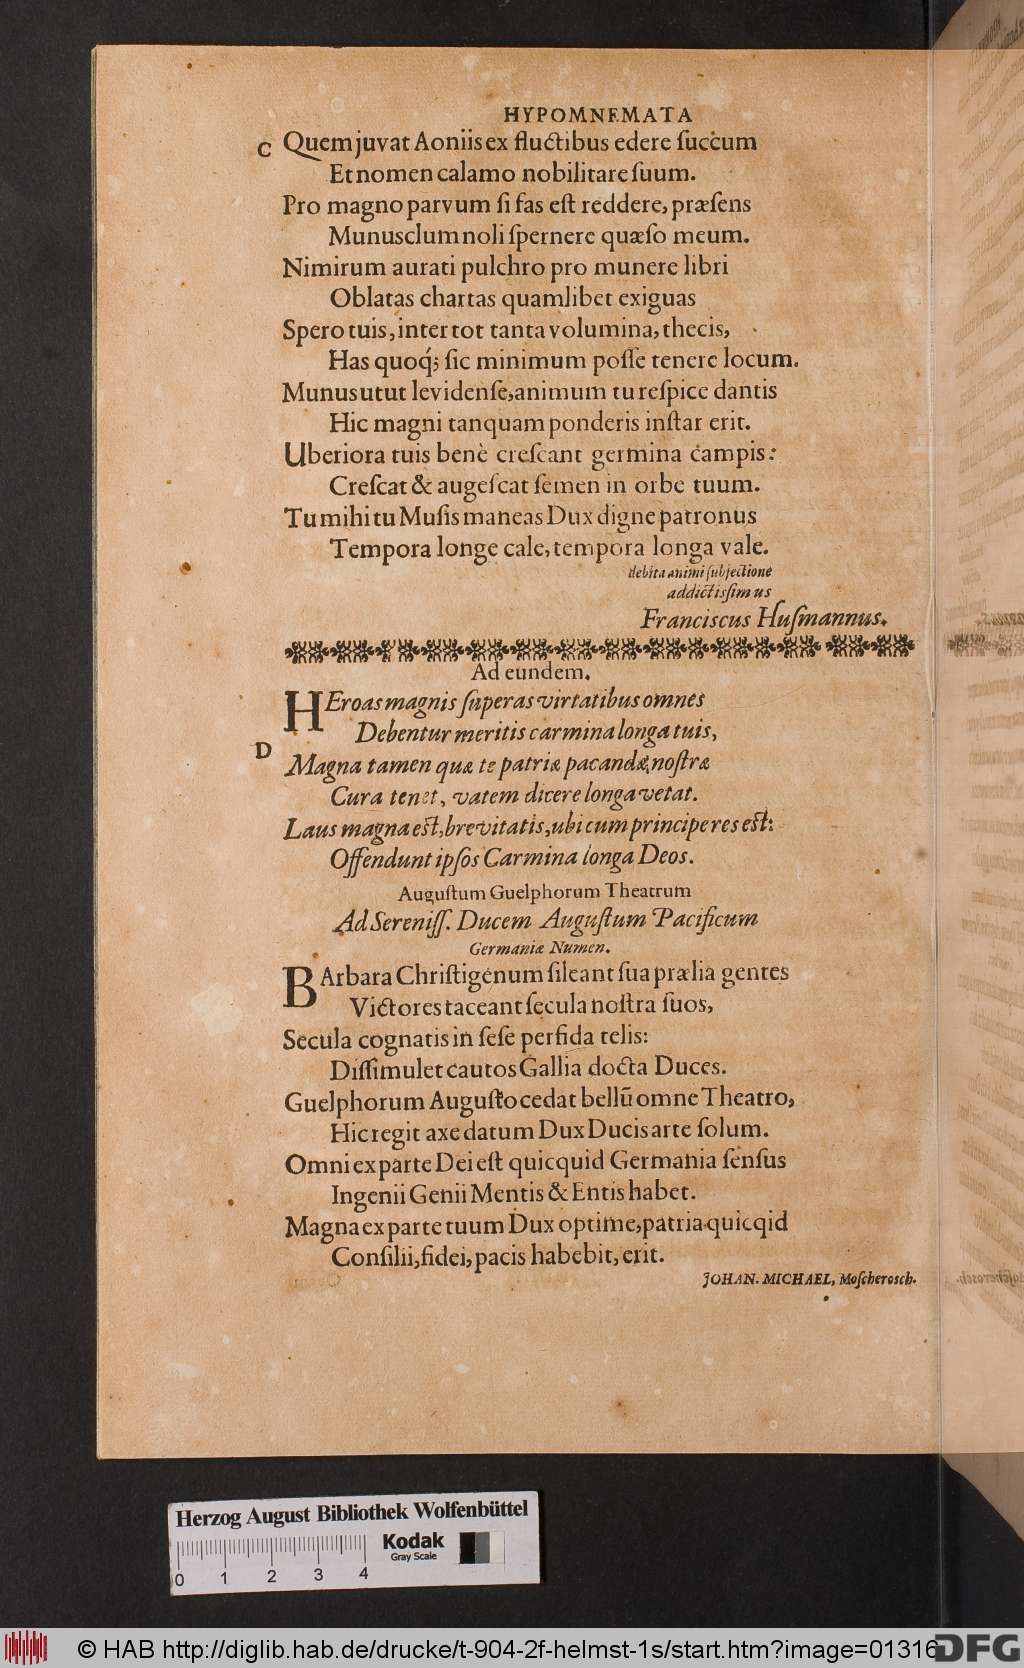 HYPOMNEMATA
C Quem juvat Aoniis ex fluctibus edere ſuccum
Et nomen calamo nobilitare ſuum.
Pro magno parvum ſi fas eſt reddere, præſens
Munusclum noli ſpernere quæſo meum.
Nimirum aurati pulchro pro munere libri
Oblatas chartas quamlibet exiguas
Spero tuis, inter tot tanta volumina, thecis,
Has quoq́; ſic minimum poſſe tenere locum.
Munus utut levidenſe, animum tu reſpice dantis
Hic magni tanquam ponderis inſtar erit.
Uberiora tuis benè creſcant germina campis:
Creſcat & augeſcat ſemen in orbe tuum.
Tu mihi tu Muſis maneas Dux digne patronus
Tempora longe cale, tempora longa vale.
debita animi ſubjectione
addictiſſimus
Franciscus Huſmannus.
Ad eundem.
HEroas magnis ſuperas virtatibus omnes
Debentur meritis carmina longa tuis,
D Magna tamen quæ te patriæ pacandæ, noſtræ
Cura tenet, vatem dicere longa vetat.
Laus magna eſt, brevitatis, ubi cum principe res eſt:
Offendunt ipſos Carmina longa Deos.
Auguſtum Guelphorum Theatrum
Ad Sereniſſ. Ducem Auguſtum Pacificum
Germaniæ Numen.
BArbara Chriſtigenum ſileant ſua prælia gentes
Victores taceant ſecula noſtra ſuos,
Secula cognatis in ſeſe perfida telis:
Diſſimulet cautos Gallia docta Duces.
Guelphorum Auguſto cedat bellū omne Theatro,
Hic regit axe datum Dux Ducis arte ſolum.
Omni ex parte Dei eſt quicquid Germania ſenſus
Ingenii Genii Mentis & Entis habet.
Magna ex parte tuum Dux optime, patria quicqid
Conſilii, fidei, pacis habebit, erit.
JOHAN. MICHAEL, Moſcheroſch.
Herzog August Bibliothek Wolfenbüttel
Kodak
Gray Scale
0 1 2 3 4
© HAB http://diglib.hab.de/drucke/t-904-2f-helmst-1s/start.htm?image=01316
DFG